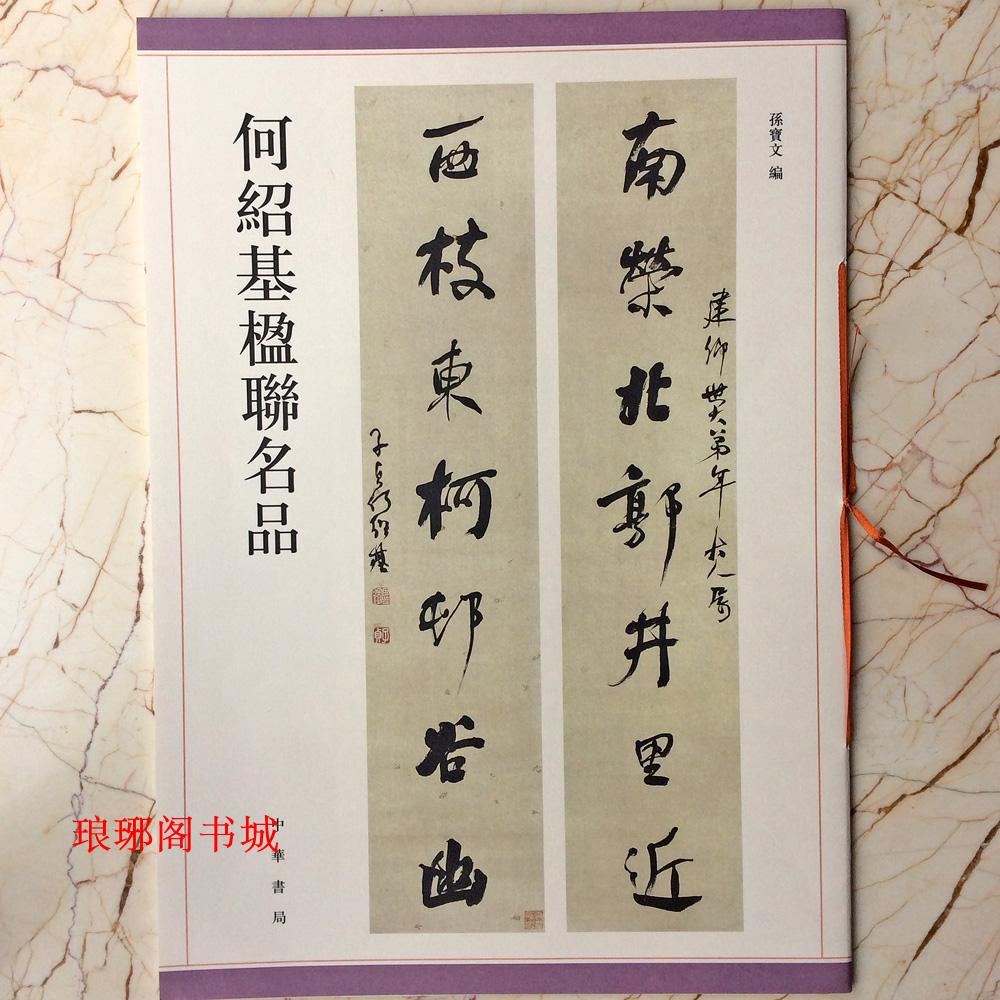 孫寶文 編
南榮北郭井里近
建卿世大弟年大人屬
西枝東柯邨谷幽
子貞何紹基
何紹基楹聯名品
中華書局
琅琊阁书城